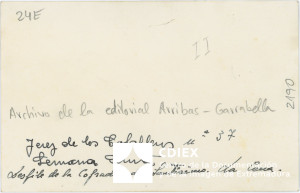 24E
II
2190
Archivo de la editorial Arribas - Garrabella
Jerez de los Caballeros nº 37
Semana
Desfile de la Cofradía Santísimo. La Cena.
CDIEX